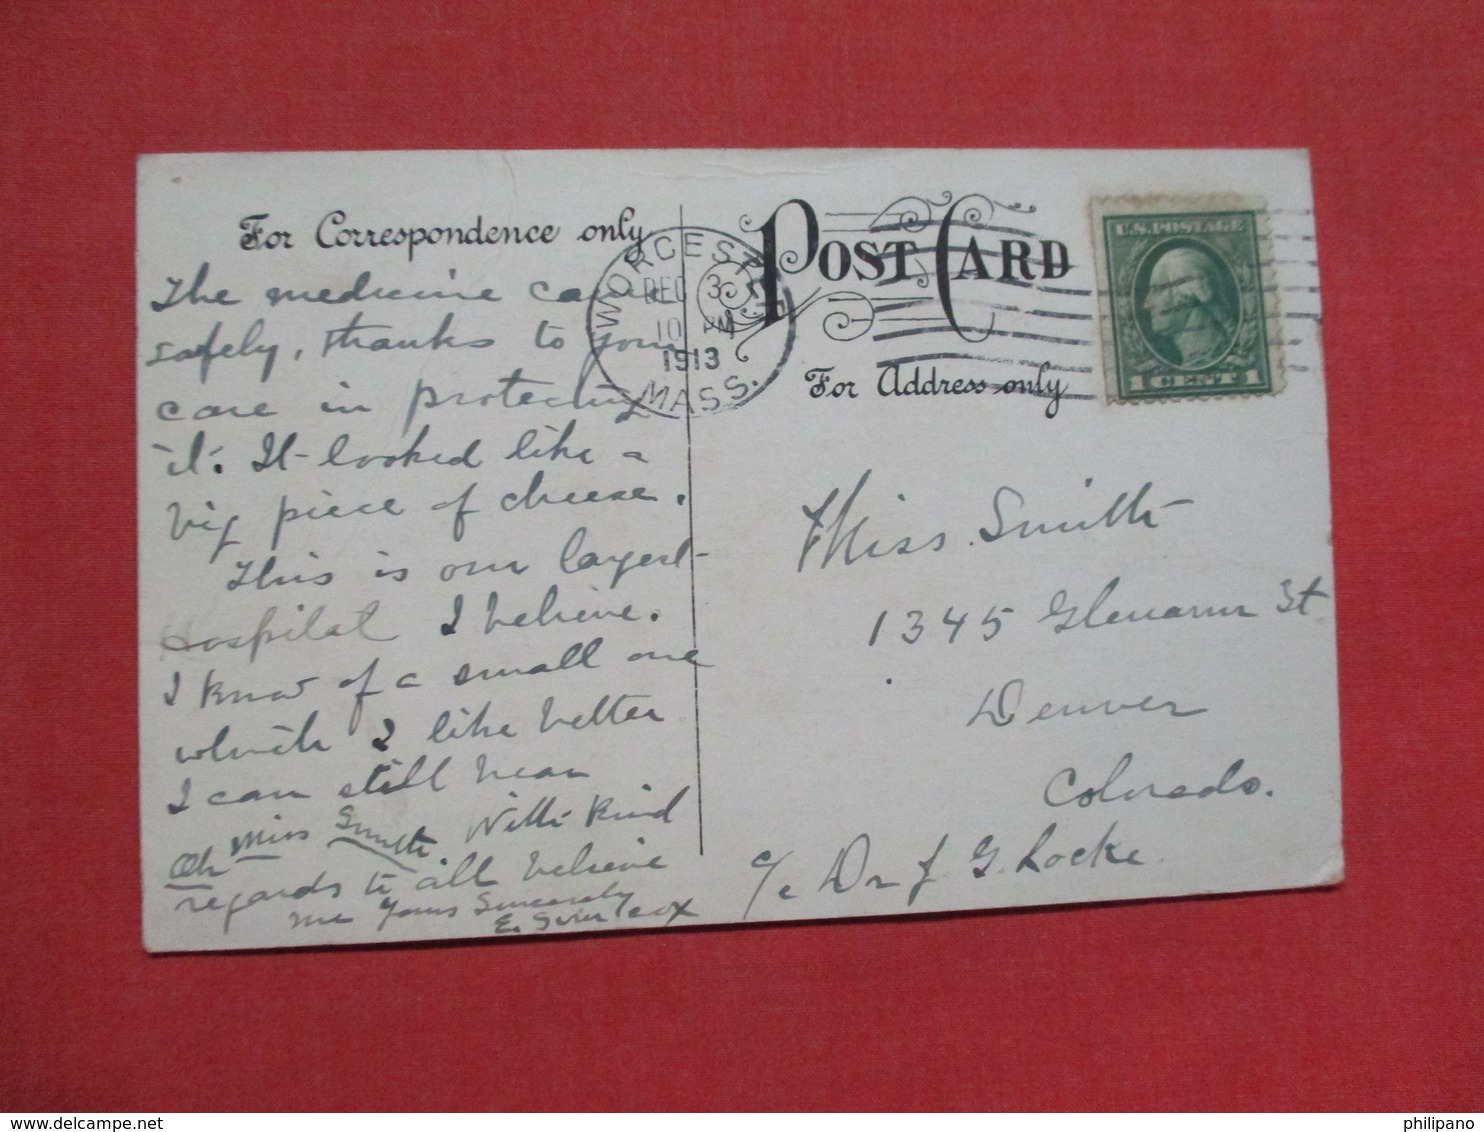 For Correspondence only
The medicine came
safely, thanks to your
care in protecting
it. It looked like a
big piece of cheese.
This is our largest
Hospital I believe.
I know of a small one
which I like better
I can still hear
Oh Miss Smith. With kind
regards to all believe
me yours Sincerely
E.
WORCESTER
DEC 3
10 PM
1913
MASS.
POST CARD
For Address only
U.S. POSTAGE
1 CENT 1
Miss. Smith
1345 Glenarm St
Denver
Colorado.
c/o Dr J G. Locke
www.delcampe.net
philipano